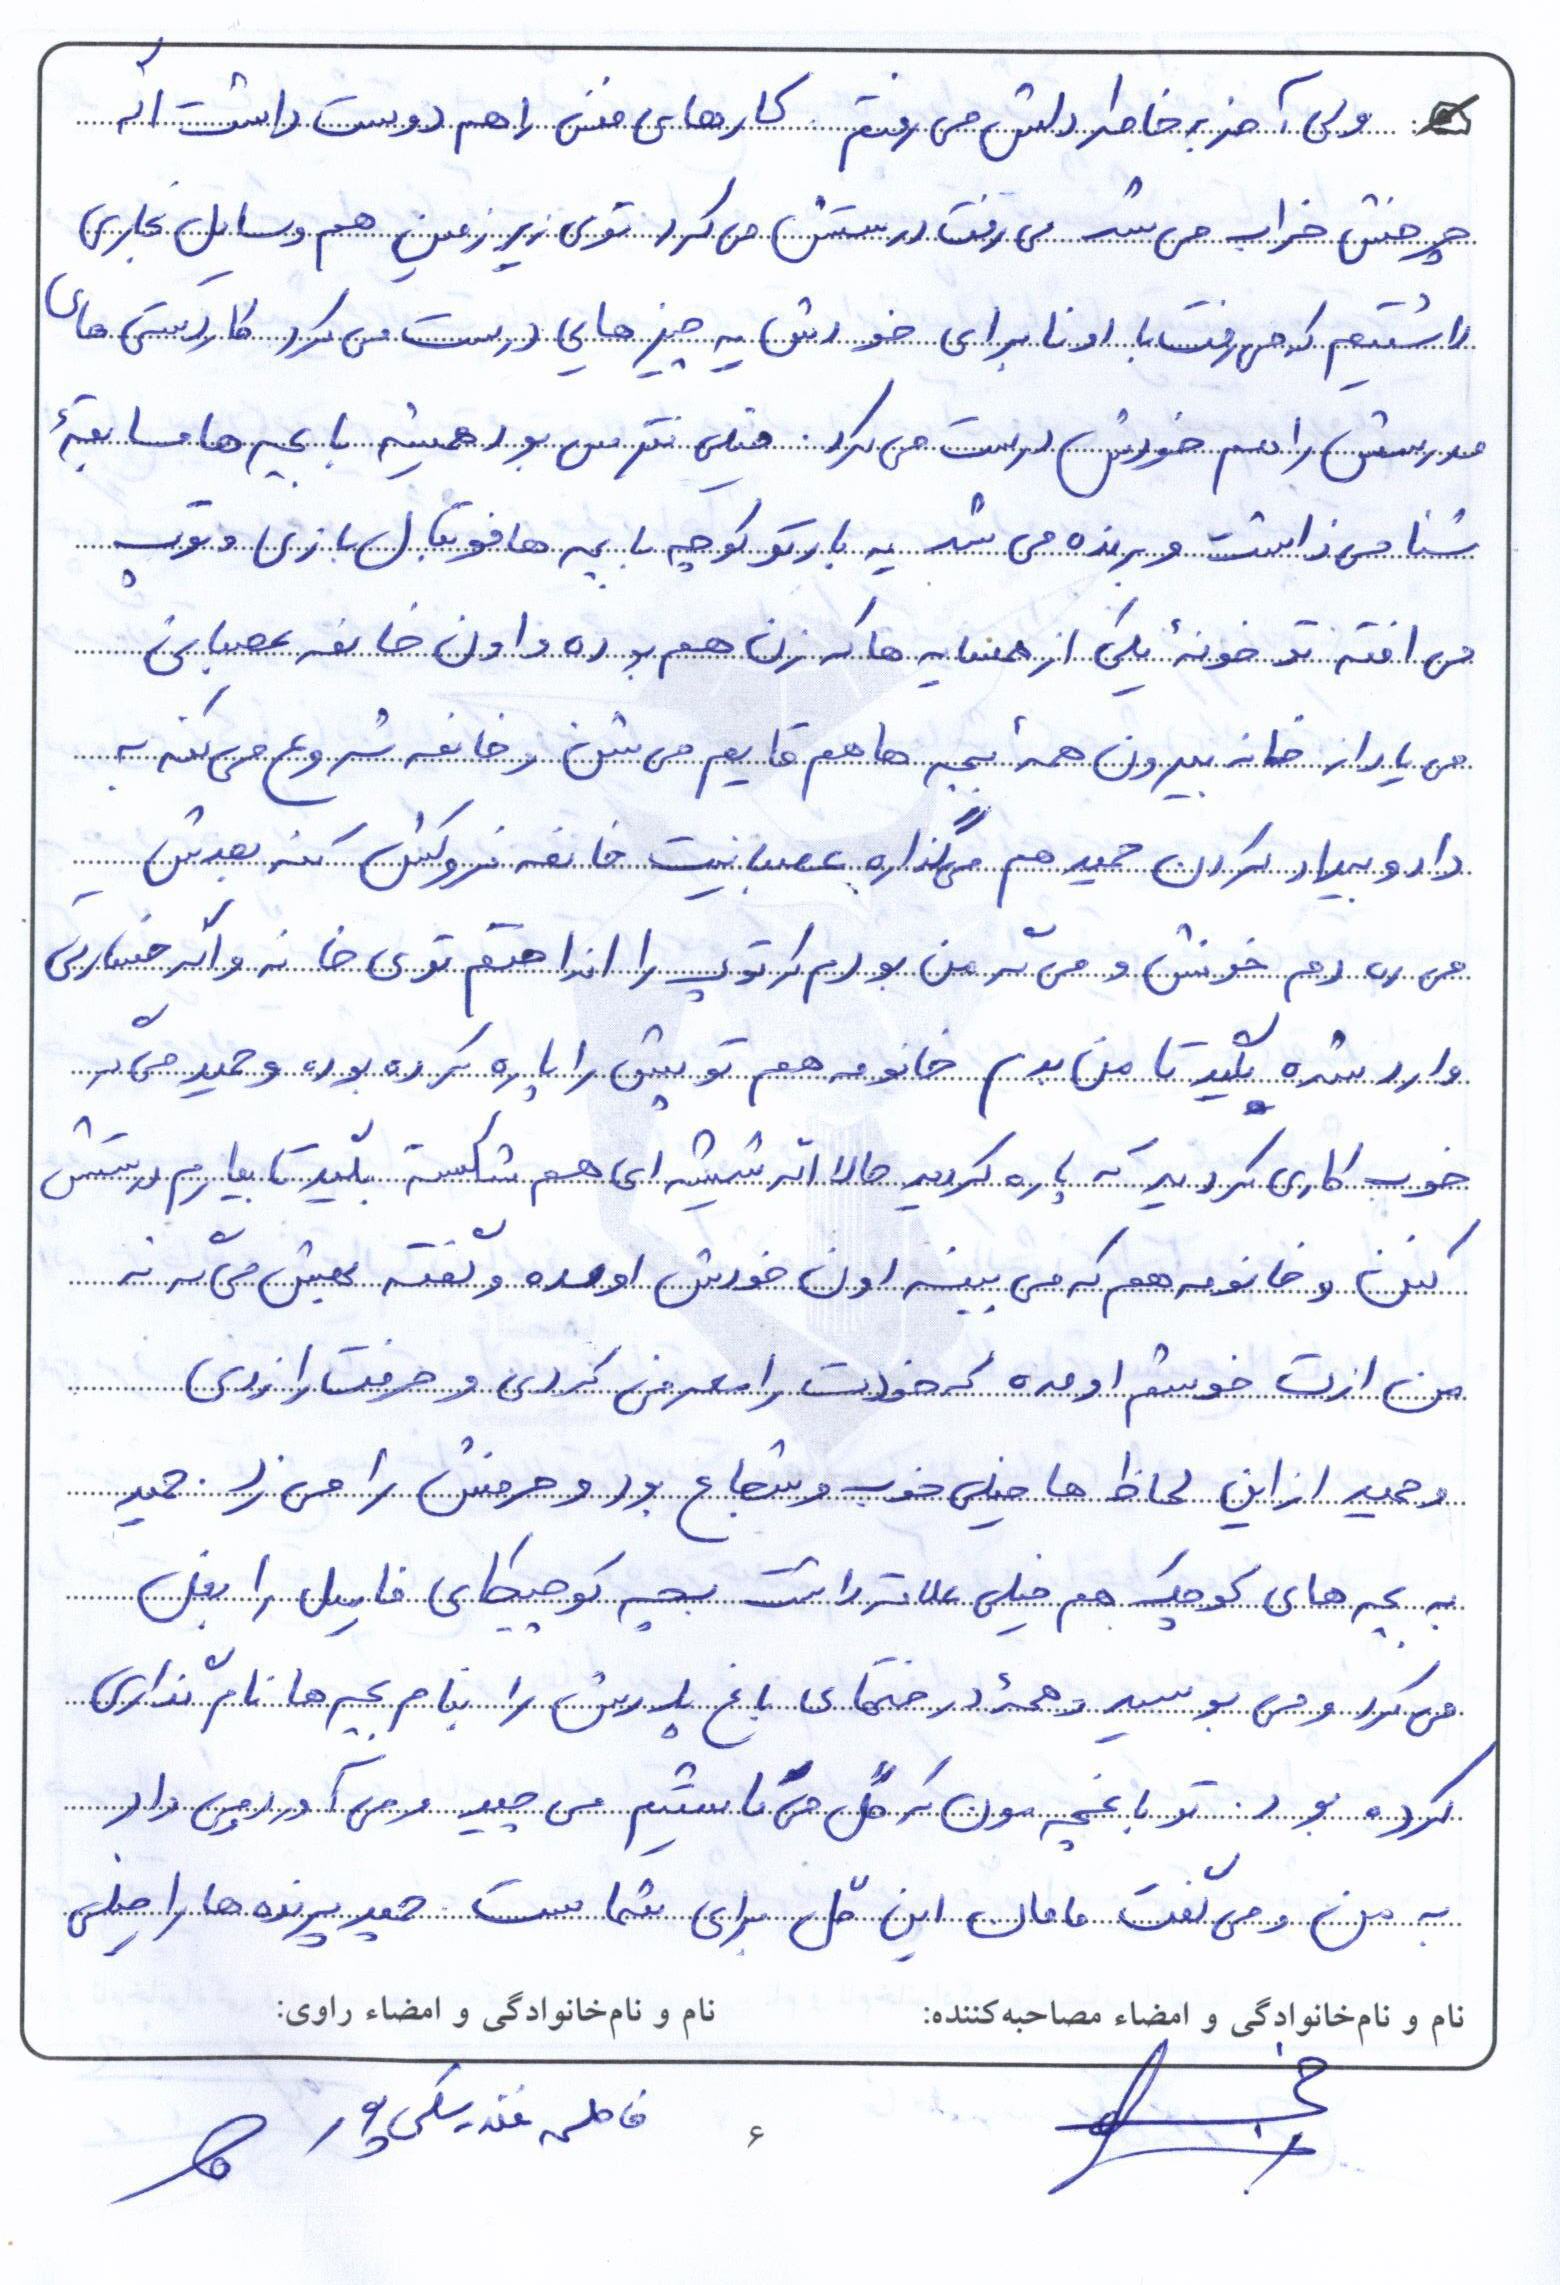 ولی آخر به خاطر دلش می رفتم. کارهای فنی را هم دوست داشت اگه
چرخش خراب می شد می رفت درستش می کرد توی زیرزمین هم وسایل نجاری
داشتیم که می رفت با اونا برای خودش یه چیزهایی درست می کرد کاردستی های
مدرسش را هم خودش درست می کرد. خیلی نترس بود همیشه با بچه ها مسابقهٔ
شنا می ذاشت و برنده می شد یه بار تو کوچه با بچه ها فوتبال بازی و توپ
می افته تو خونهٔ یکی از همسایه ها که زن هم بوده و اون خانمه عصبانی
می یاد از خانه بیرون همهٔ بچه ها هم قایم می شن و خانمه شروع می کنه به
داد و بیداد کردن حمید هم می گذاره عصبانیت خانمه فروکش کنه بعدش
می ره دم خونش و می گه من بودم که توپ را انداختم توی خانه و اگر خسارتی
وارد شده بگید تا من بدم خانومه هم توپش را پاره کرده بوده و حمید می گه
خوب کاری کردید که پاره کردید حالا اگه شیشه ای هم شکسته بگید تا بیارم درستش
کنن و خانومه هم که می بینه اون خودش اومده و گفته بهش می گه نه
من ازت خوشم اومده که خودت را معرفی کردی و حرفت را زدی
و حمید از این لحاظ ها خیلی خوب و شجاع بود و حرفش را می زد. حمید
به بچه های کوچیک هم خیلی علاقه داشت بچه کوچیکای فامیل را بغل
می کرد و می بوسید و همهٔ درختهای باغ پدرش را بنام بچه ها نام گذاری
کرده بود. تو باغچه مون که گل می کاشتیم می چید و می آورد می داد
به من و می گفت مامان این گل برای شماست. حمید پرنده ها را خیلی
نام و نام‌خانوادگی و امضاء مصاحبه‌کننده: نام و نام‌خانوادگی و امضاء راوی:
فاطمه فندرسکی پور
۶